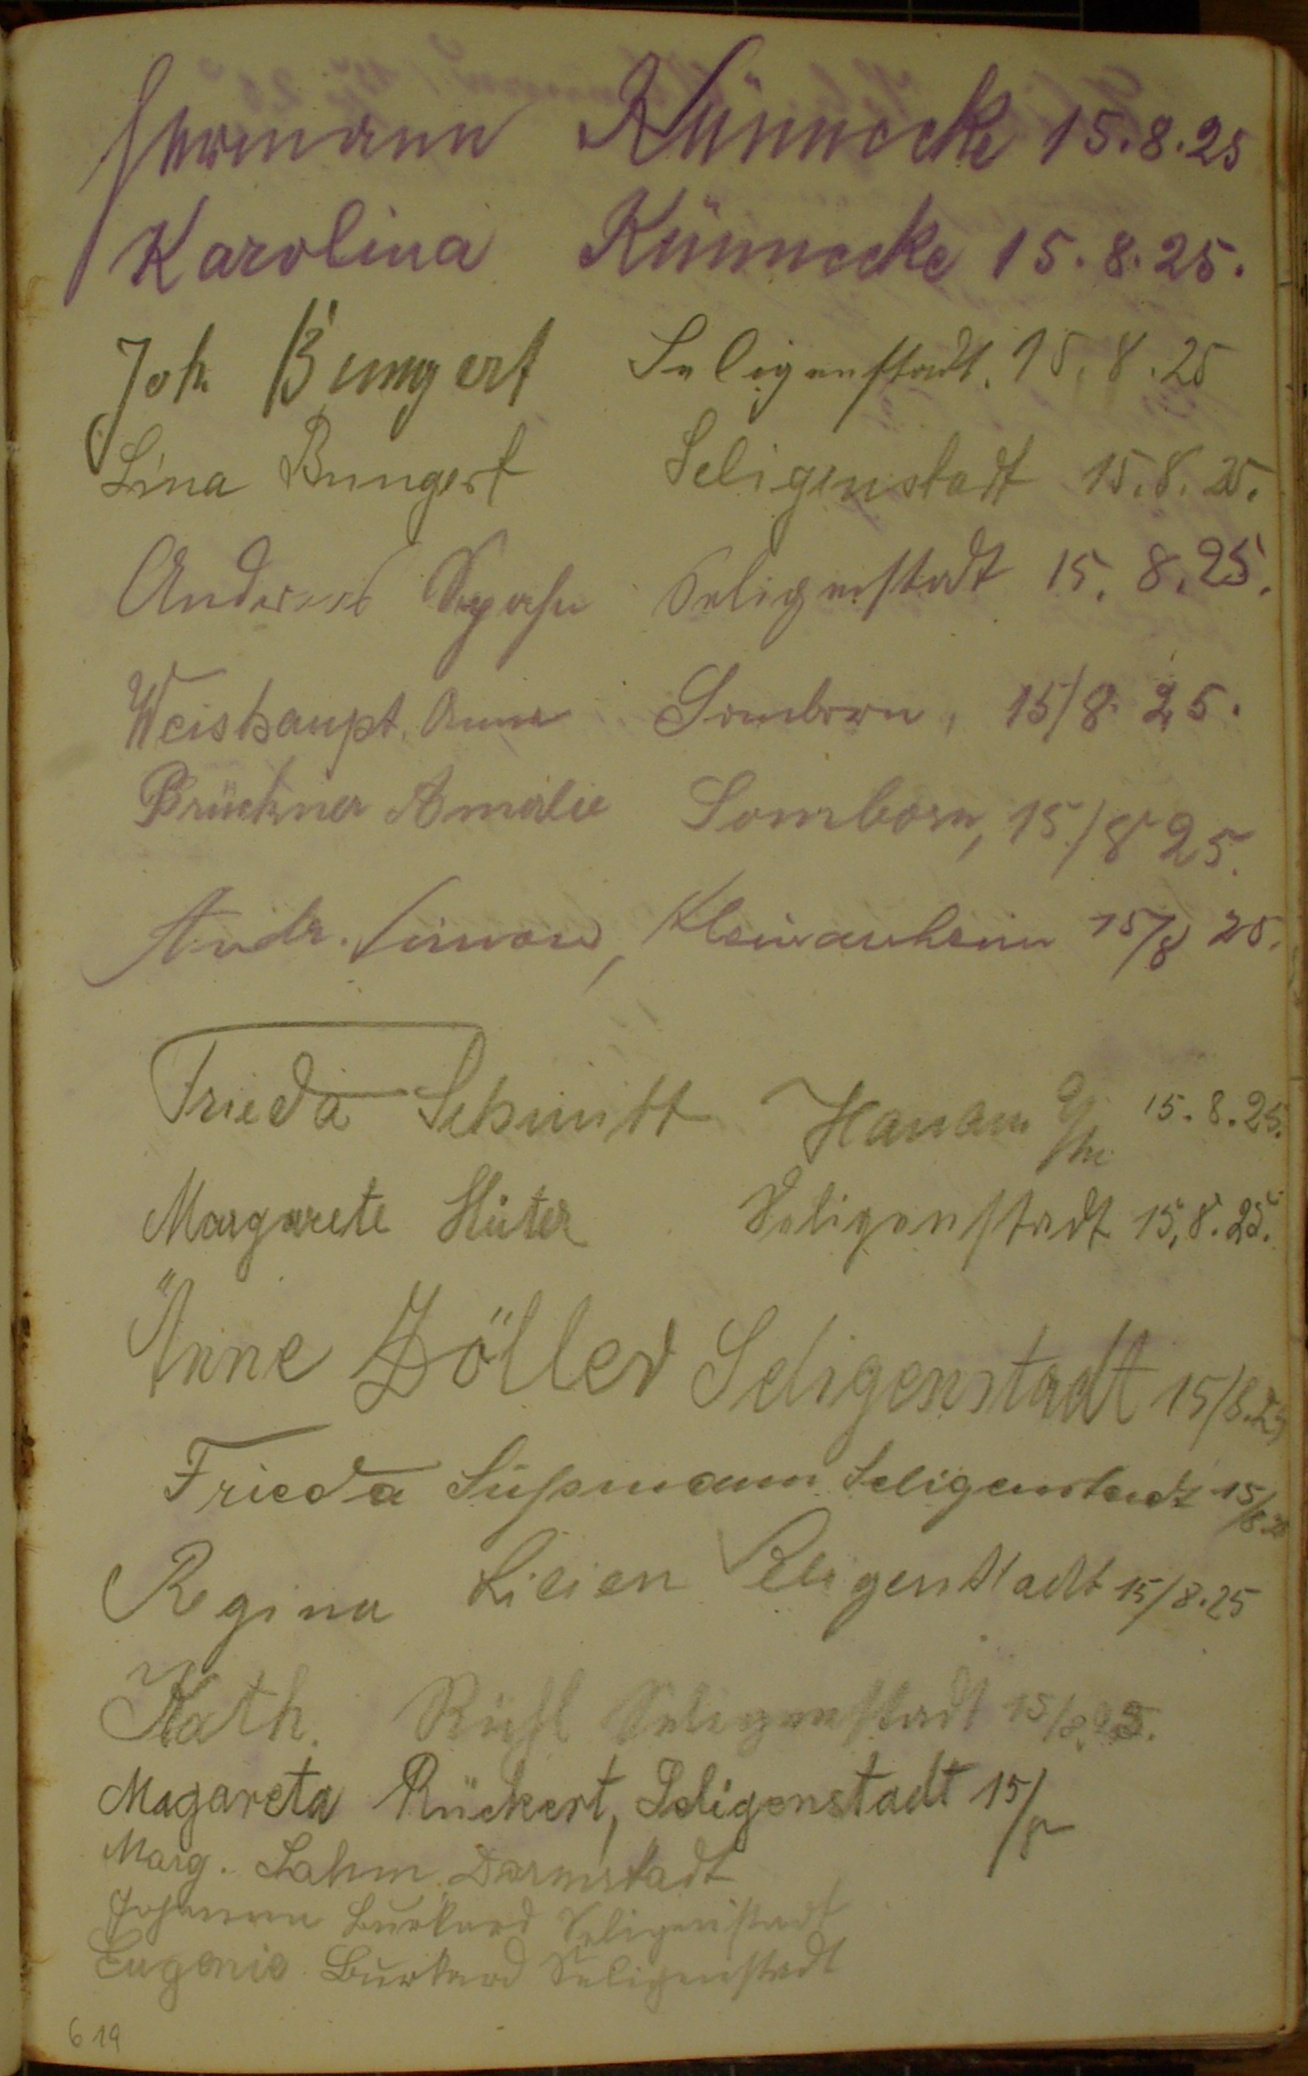 Hermann Künnecke 15.8.25
Karolina Künnecke 15.8.25.
Joh Bungert Seligenstadt. 15.8.25
Lina Bungert Seligenstadt 15.8.25.
Andreas Spahn Seligenstadt 15.8.25.
Weishaupt. Anna Somborn, 15/8. 25.
Brückner Amalie Somborn, 15/8 25.
Andr. Simon, Kleinauheim 15/8 25.
Frieda Schmitt Hanau a/M. 15.8.25.
Margarete Hüter Seligenstadt 15.8.25.
Änne Zöller Seligenstadt 15/8.25
Frieda Süßmann Seligenstadt 15/8.25
Regina Seligenstadt 15/8.25
Kath. Rühl Seligenstadt 15/8.25.
Magareta Rückert, Seligenstadt 15/8
Marg. Lahm Darmstadt
Johanna Burkard Seligenstadt
Eugenie Burkard Seligenstadt
619